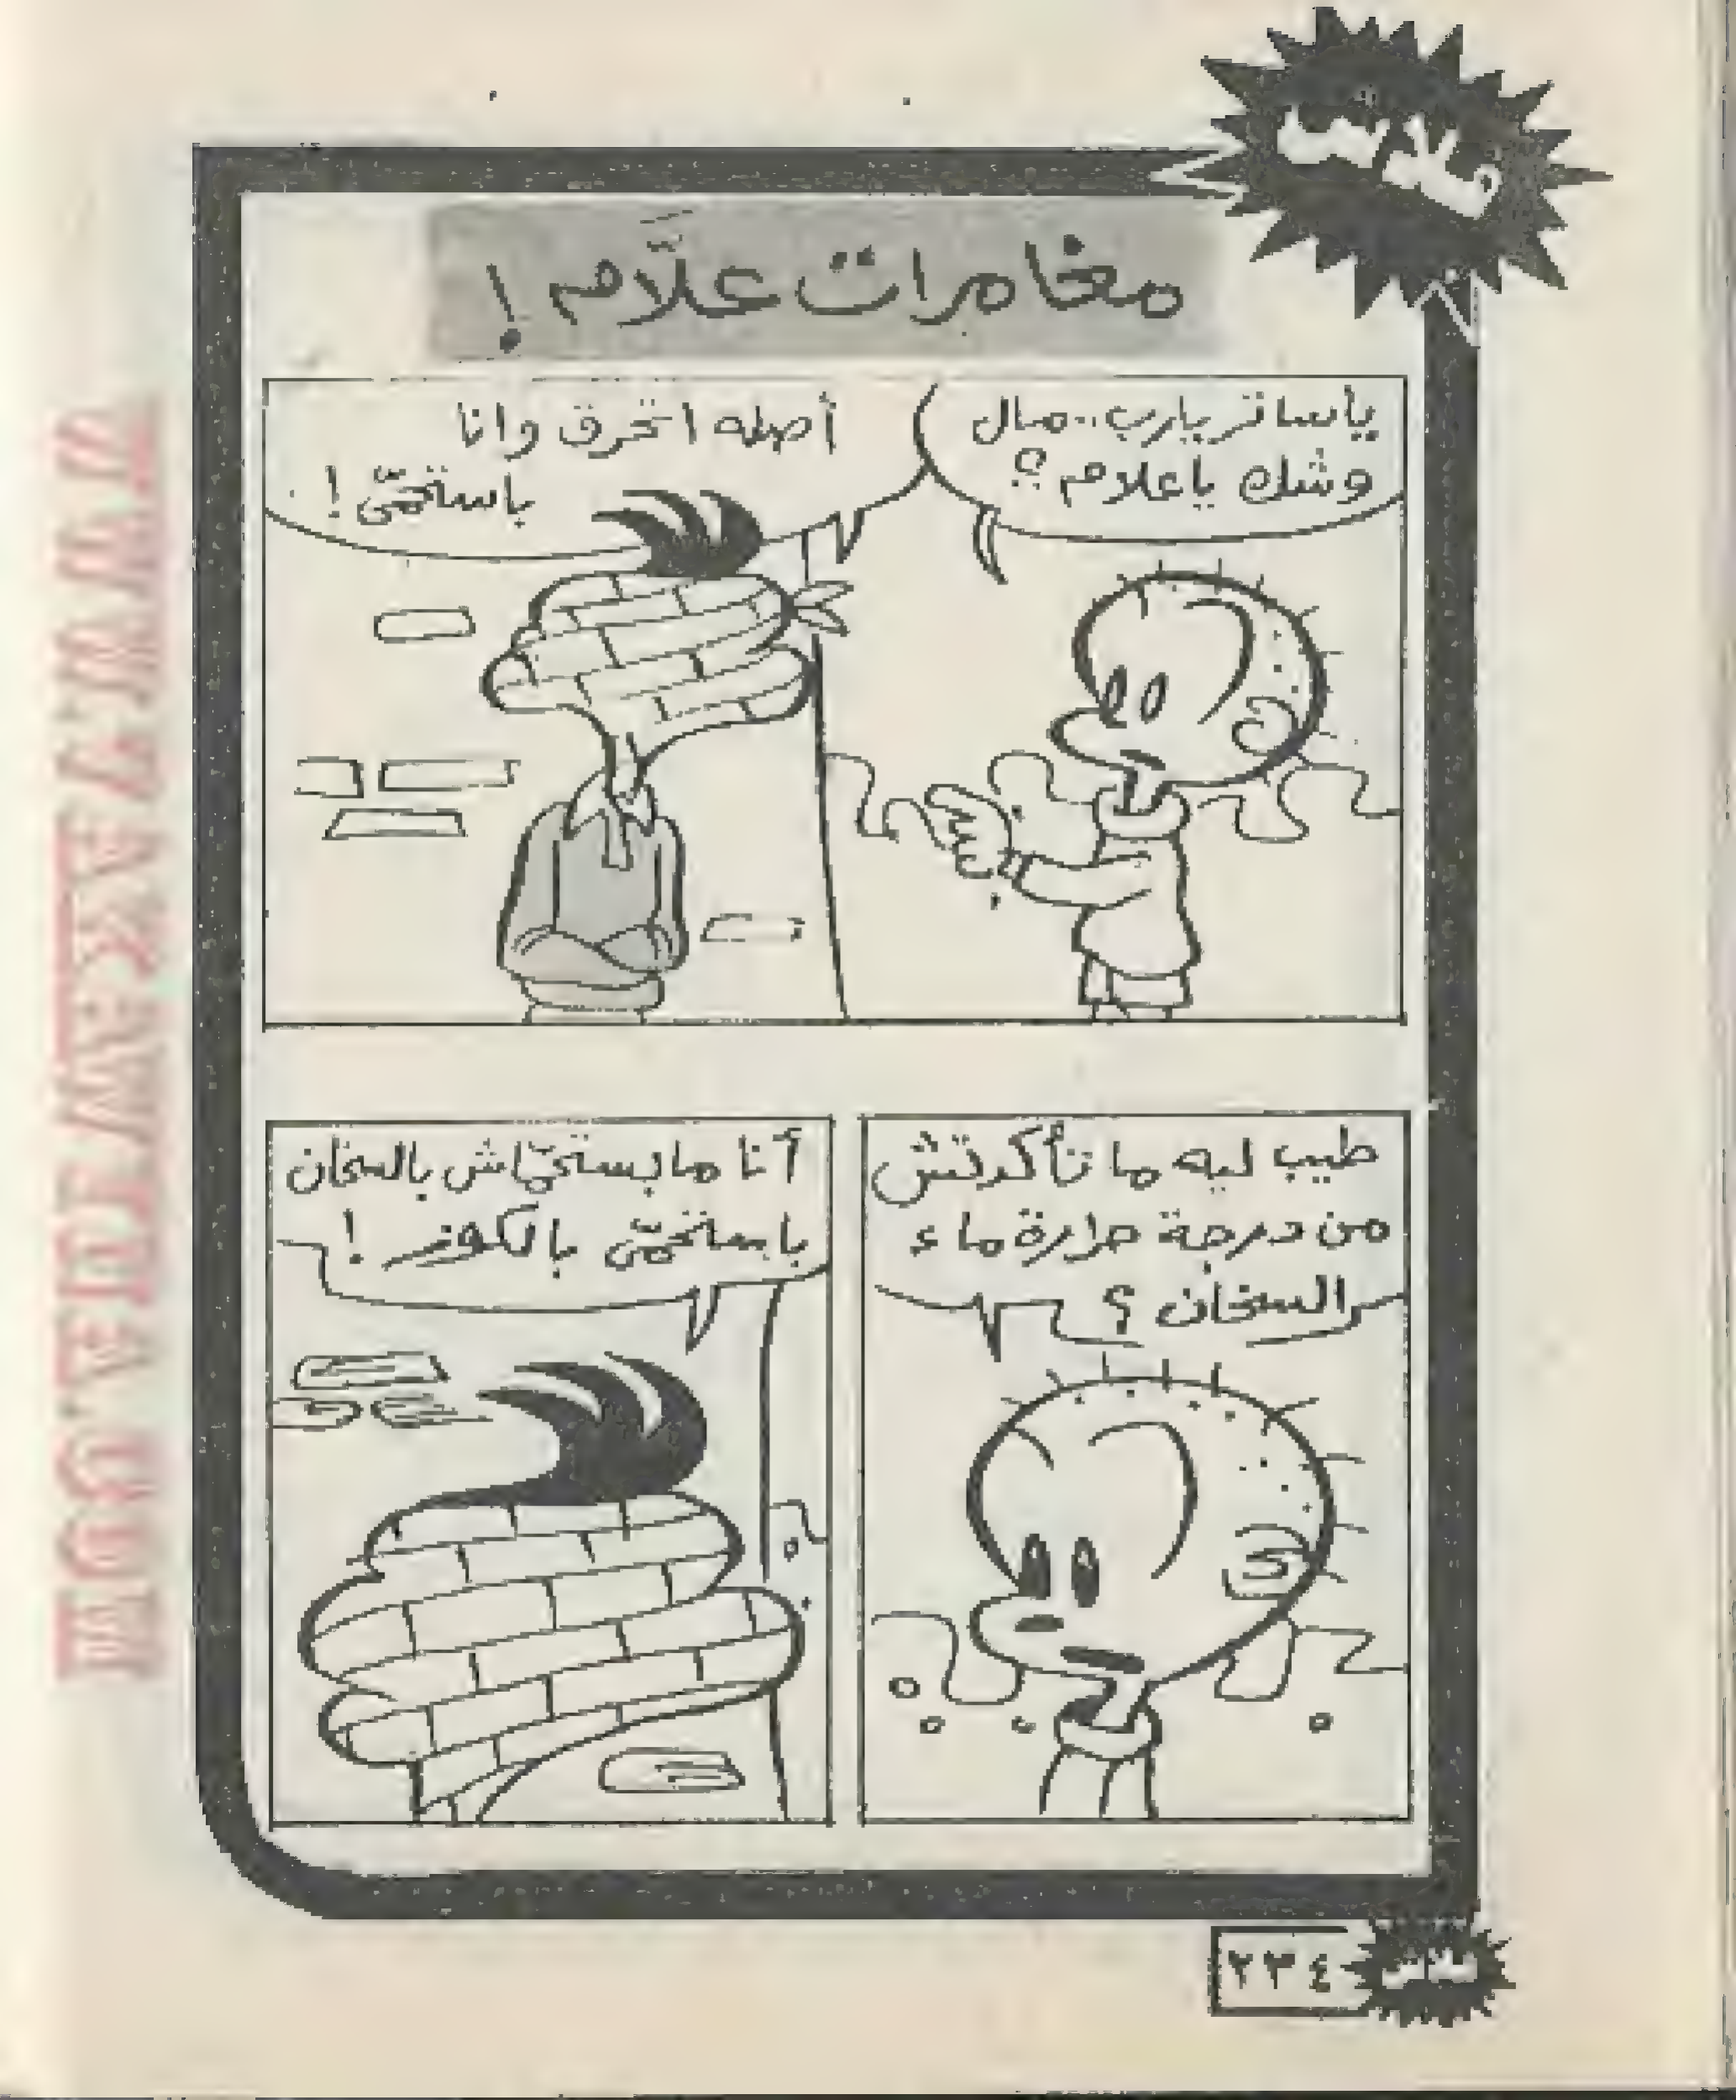 فلاش
مغامرات علَّام !
ياساتر يارب..مال
وشك ياعلام ؟
أصله اتحرق وانا
باستحمّى !
طيب ليه ما تأكدتش
من درجة حرارة ماء
السخان ؟
أنا مابستحمّاش بالسخان
باستحمّى بالكوز !
٢٣٤
فلاش